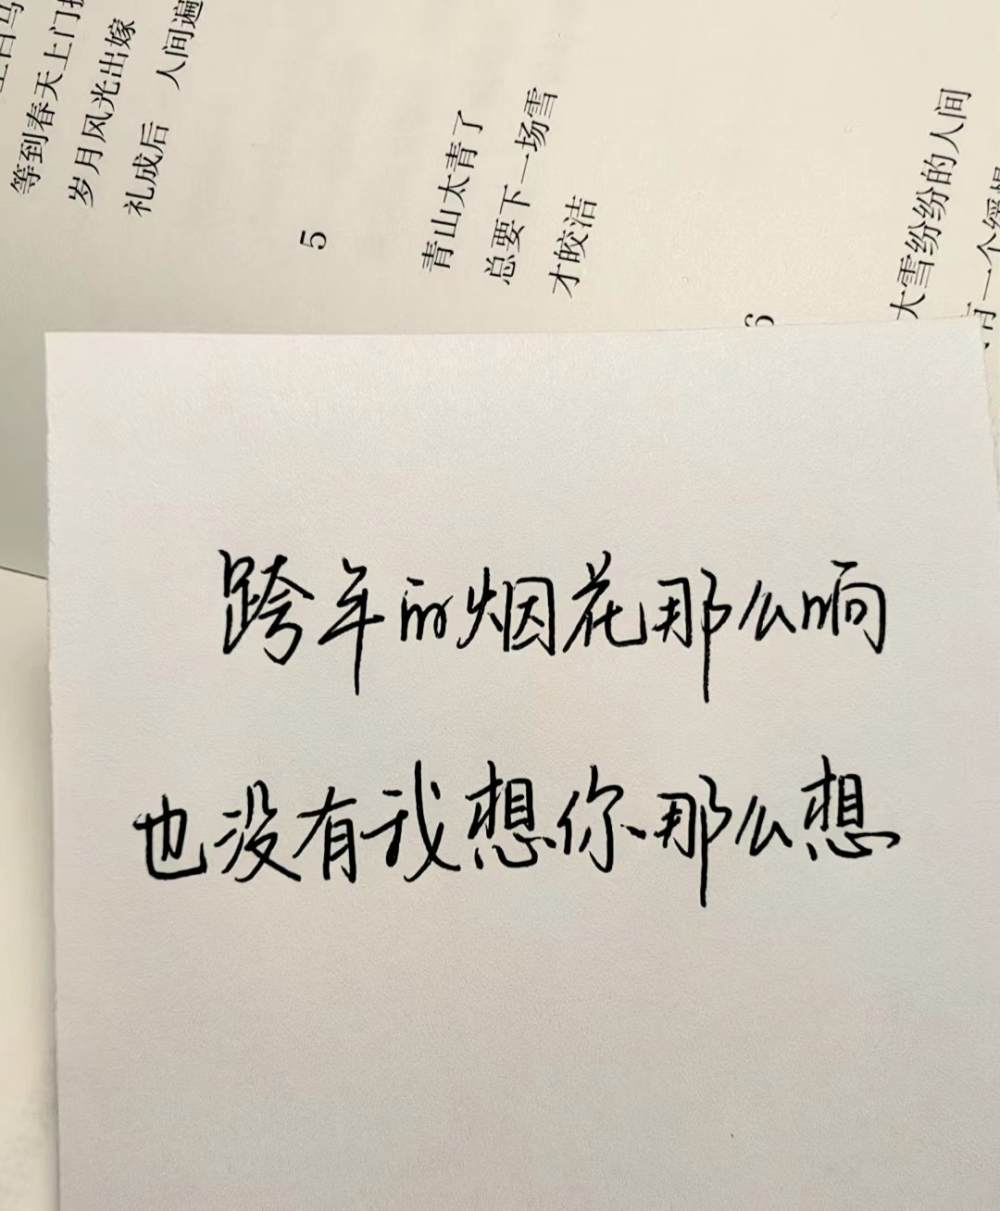 等到春天上门
岁月风光出嫁
礼成后 人间遍
5
青山太青了
总要下一场雪
才皎洁
6
大雪纷纷的人间
一个
跨年的烟花那么响
也没有我想你那么想